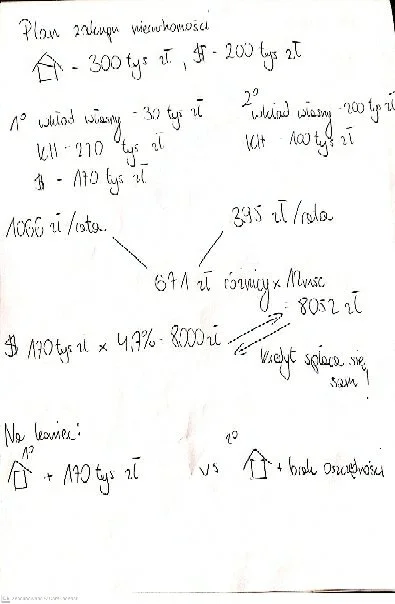 Plan zakupu nieruchomości
- 300 tys zł, $ - 200 tys zł
1° wkład własny - 30 tys zł
KH - 270 tys zł
$ - 170 tys zł
2° wkład własny - 200 tys zł
KH - 100 tys zł
1066 zł/rata
395 zł/rata
671 zł różnicy x 12 msc
= 8052 zł
$ 170 tys zł x 4,7% - 8000 zł
kredyt spłaca się
sam!
Na koniec:
1° + 170 tys zł vs 2° + brak oszczędności